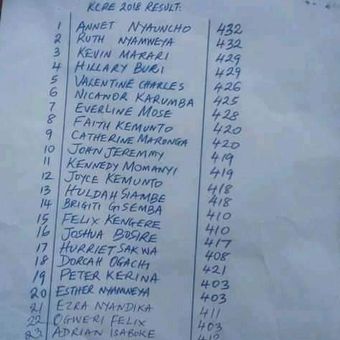 KCPE 2018 RESULT:
1 ANNET NYAUNCHO 432
2 RUTH NYAMWEYA 432
3 KEVIN MARARI 429
4 HILLARY BURI 429
5 VALENTINE CHARLES 426
6 NICANOR KARUMBA 425
7 EVERLINE MOSE 428
8 FAITH KEMUNTO 420
9 CATHERINE MARONGA 420
10 JOHN JEREMMY 419
11 KENNEDY MOMANYI 419
12 JOYCE KEMUNTO 418
13 HULDAH SIAMBE 418
14 BRIGITI GISEMBA 410
15 FELIX KENGERE 410
16 JOSHUA BOSIRE 417
17 HURRIET SAKWA 408
18 DORCAH OGACHI 421
19 PETER KERINA 403
20 ESTHER NYAMNEYA 403
21 EZRA NYANDIKA 411
22 OGWERI FELIX 403
23 ADRIAN ISABOKE